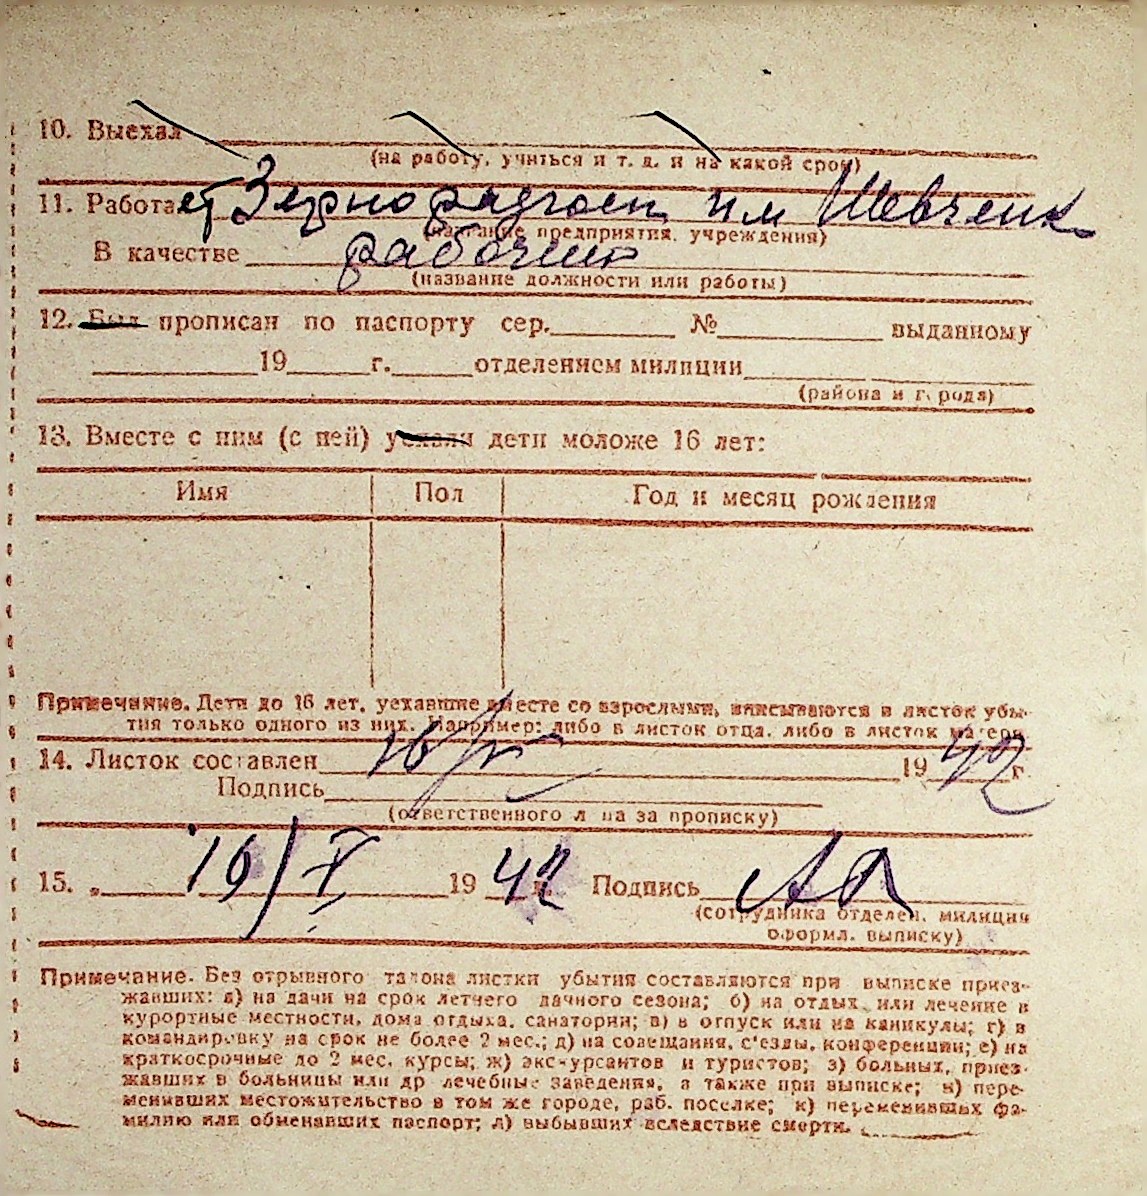 10. Выехал
(на работу, учиться и т. д. и на какой срок)
11. Работает им Шевченк
(название предприятия, учреждения)
В качестве рабочий
(название должности или работы)
12. Был прописан по паспорту сер. № выданному
19 г. отделением милиции
(района и города)
13. Вместе с ним (с ней) уехали дети моложе 16 лет:
Имя Пол Год и месяц рождения
Примечание. Дети до 16 лет, уехавшие вместе со взрослыми, вписываются в листок убы-
тия только одного из них. Например: либо в листок отца, либо в листок матери
14. Листок составлен 1942 г.
Подпись
(ответственного лица за прописку)
15. „ 19/X 1942 Подпись
(сотрудника отделен. милиции
оформл. выписку)
Примечание. Без отрывного талона листки убытия составляются при выписке приез-
жавших: а) на дачи на срок летнего дачного сезона; б) на отдых или лечение в
курортные местности, дома отдыха, санатории; в) в отпуск или на каникулы; г) в
командировку на срок не более 2 мес.; д) на совещания, с'езды, конференции; е) на
краткосрочные до 2 мес. курсы; ж) экскурсантов и туристов; з) больных, приез-
жавших в больницы или др лечебные заведения, а также при выписке; и) пере-
менивших местожительство в том же городе, раб. поселке; к) переменивших фа-
милию или обменавших паспорт; л) выбывших вследствие смерти.